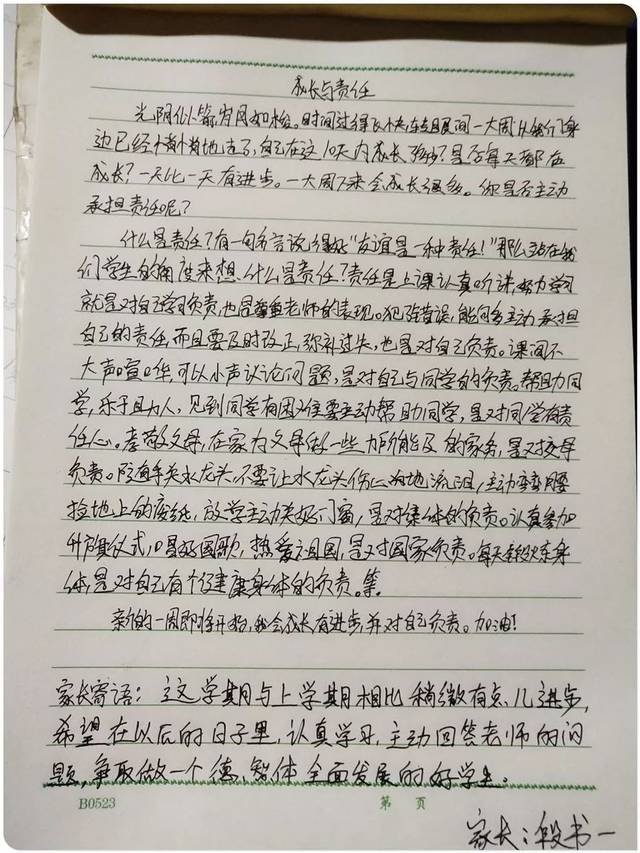 成长与责任
光阴似箭岁月如梭。时间过得飞快,转眼间一大周从我们身
边已经悄悄地走了,自己在这10天内成长了吗?是否每天都在
成长?一天比一天有进步。一大周下来会成长很多。你是否主动
承担责任呢?
什么是责任?有一句名言说得好"友谊是一种责任!"那么站在我
们学生的角度来想,什么是责任?责任是上课认真听讲,努力学习
就是对自己学习负责,也是尊重老师的表现。犯了错误,能够主动承担
自己的责任,而且要及时改正,弥补过失,也是对自己负责。课间不
大声喧哗,可以小声议论问题,是对自己与同学的负责。帮助同
学,乐于助人,见到同学有困难要主动帮助同学,是对同学有责
任心。孝敬父母,在家为父母做一些力所能及的家务,是对父母
负责。随手关水龙头,不要让水龙头伤心的地流泪,主动弯腰
捡地上的废纸,放学主动关好门窗,是对集体的负责。认真参加
升旗仪式,唱好国歌,热爱祖国,是对国家负责。每天锻炼身
体,是对自己有个健康身体的负责。等。
新的一周即将开始,我会成长有进步,并对自己负责。加油!
家长寄语:这学期与上学期相比稍微有点儿进步,
希望在以后的日子里,认真学习,主动回答老师的问
题,争取做一个德、智体全面发展的好学生。
B0523 第 页
家长:段书一